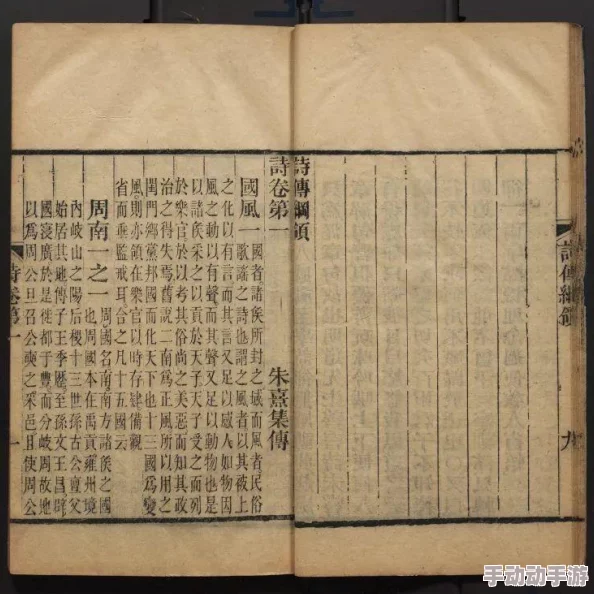 詩傳綱領
九
詩傳綱領
詩卷第一　朱熹集傳
國風一　國者諸侯所封之域而風者民俗
歌謠之詩也謂之風者以其被上
之化以有言而其言又足以感人如物因
風之動以有聲而其聲又足以動物也是
以諸侯采之以貢於天子天子受之而列
於樂官於以考其俗尚之美惡而知其政
治之得失焉舊說二南爲正風所以用之
閨門鄉黨邦國而化天下也十三國爲變
風則亦領在樂官以時存肄備觀
省而垂監戒耳合之凡十五國云
周南一之一　周國名南南方諸侯之國
也周國本在禹貢雍州境
內岐山之陽后稷十三世孫古公亶父
始居其地傳子王季歷至孫文王昌辟
國浸廣於是徙都于豐而分岐周故地
以爲周公旦召公奭之采邑且使周公
詩卷第一
一
手动动手游